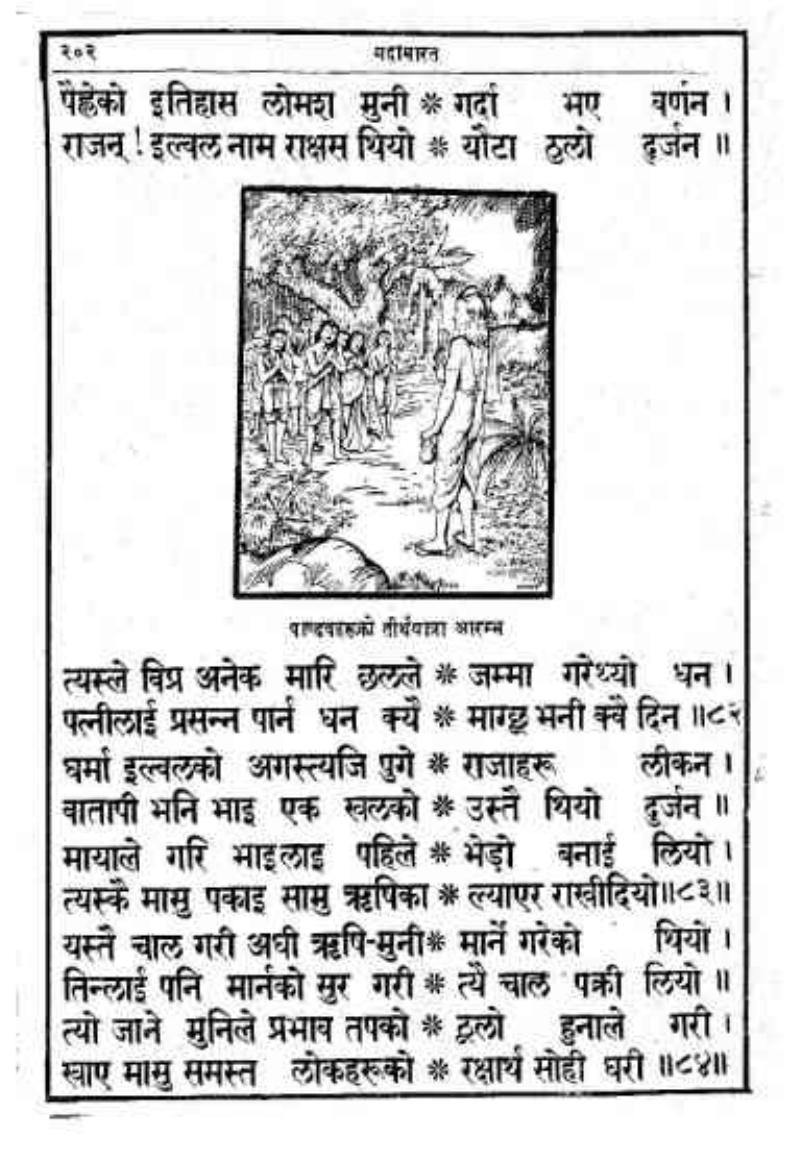 २०२
महाभारत
पैह्लेको इतिहास लोमश मुनी ❋ गर्दा भए वर्णन ।
राजन् ! इल्वल नाम राक्षस थियो ❋ यौटा ठुलो दुर्जन ॥
पाण्डवहरूको तीर्थयात्रा आरम्भ
त्यस्ले विप्र अनेक मारि छलले ❋ जम्मा गरेथ्यो धन ।
पत्नीलाई प्रसन्न पार्न धन क्यै ❋ माग्छू भनी क्वै दिन ॥८२
घर्मा इल्वलको अगस्त्यजि पुगे ❋ राजाहरू लीकन ।
वातापी भनि भाइ एक खलको ❋ उस्तै थियो दुर्जन ॥
मायाले गरि भाइलाइ पहिले ❋ भेड़ो बनाई लियो ।
त्यस्कै मासु पकाइ सामु ऋषिका ❋ ल्याएर राखीदियो॥८३॥
यस्तै चाल गरी अघी ऋषि-मुनी❋ मार्ने गरेको थियो ।
तिन्लाई पनि मार्नको सुर गरी ❋ त्यै चाल पक्री लियो ॥
त्यो जाने मुनिले प्रभाव तपको ❋ ठूलो हुनाले गरी ।
खाए मासु समस्त लोकहरूको ❋ रक्षार्थ सोही घरी ॥८४॥